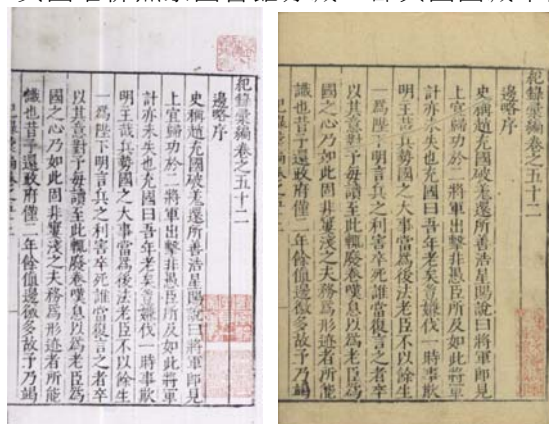 紀錄彙編卷之五十二
邊略序
史稱趙充國破羌還所善浩星賜說曰將軍即見
上宜歸功於二將軍出擊非愚臣所及如此將軍
計亦未失也充國曰吾年老矣豈嫌伐一時事欺
明主哉兵勢國之大事當爲後法老臣不以餘生
一爲陛下明言兵之利害卒死誰當復言之者卒
以其意對予每讀至此輒廢卷嘆息以爲老臣爲
國之心乃如此固非窶淺之夫務爲形迹者所能
識也昔予還政府僅二年餘值邊徼多故予乃竭
紀錄彙編卷之五十二
邊略序
史稱趙充國破羌還所善浩星賜說曰將軍即見
上宜歸功於二將軍出擊非愚臣所及如此將軍
計亦未失也充國曰吾年老矣豈嫌伐一時事欺
明主哉兵勢國之大事當爲後法老臣不以餘生
一爲陛下明言兵之利害卒死誰當復言之者卒
以其意對予每讀至此輒廢卷嘆息以爲老臣爲
國之心乃如此固非窶淺之夫務爲形迹者所能
識也昔予還政府僅二年餘值邊徼多故予乃竭